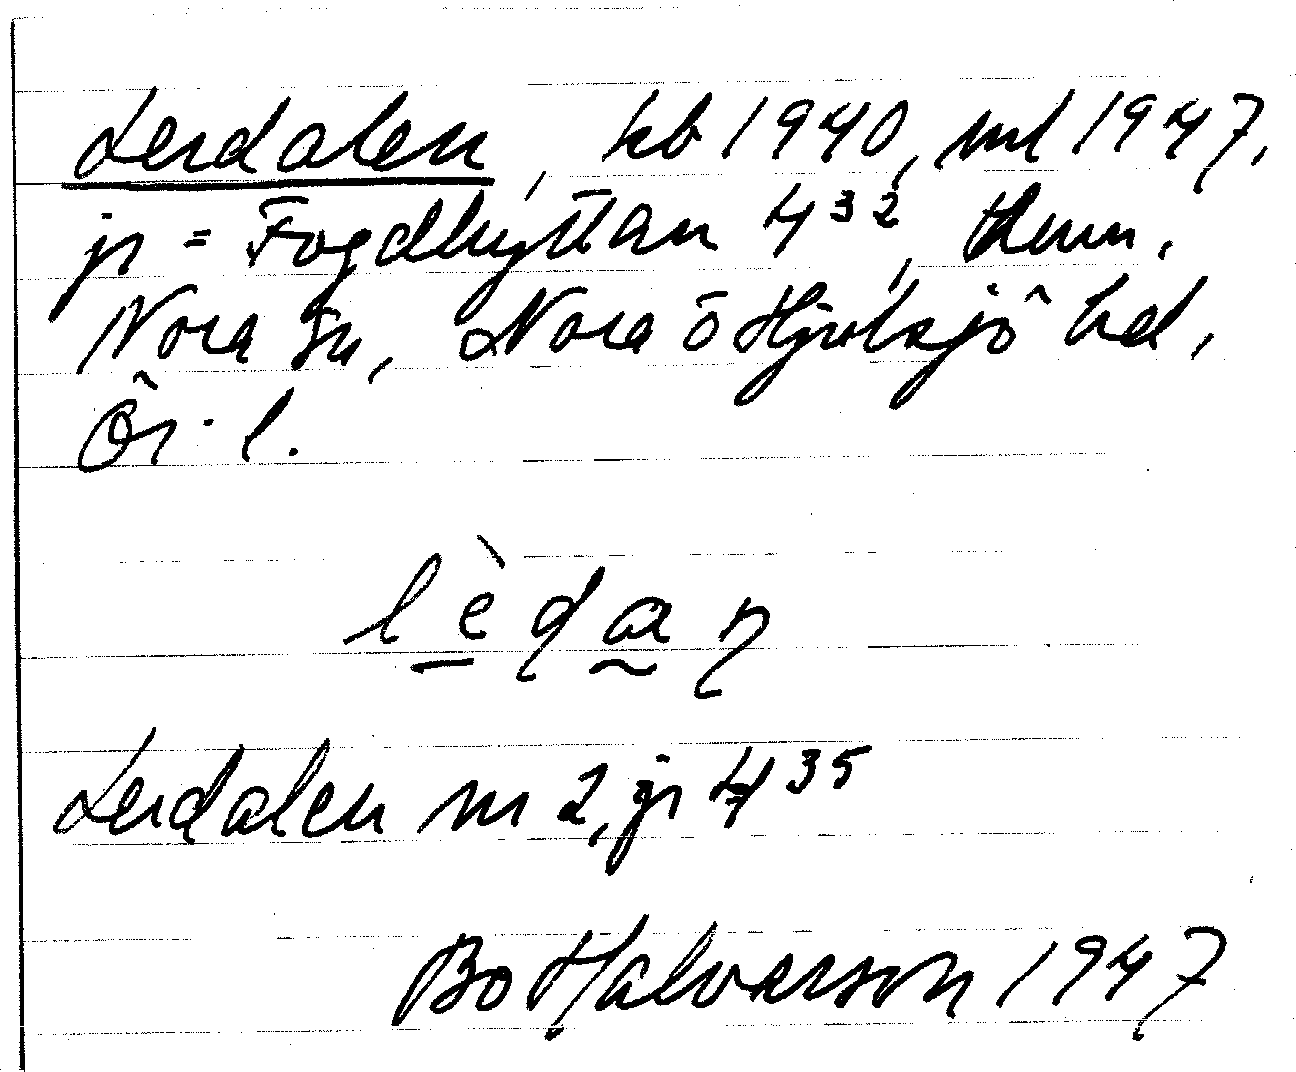 Lerdalen, kb 1940, ml 1947,
jr = Fogdhyttan 4³², hmn,
Nora sn, Nora o Hjulsjö hd,
Ör. l.
lèdan
Lerdalen nr 2, jr 4³⁵
Bo Halvarson 1947